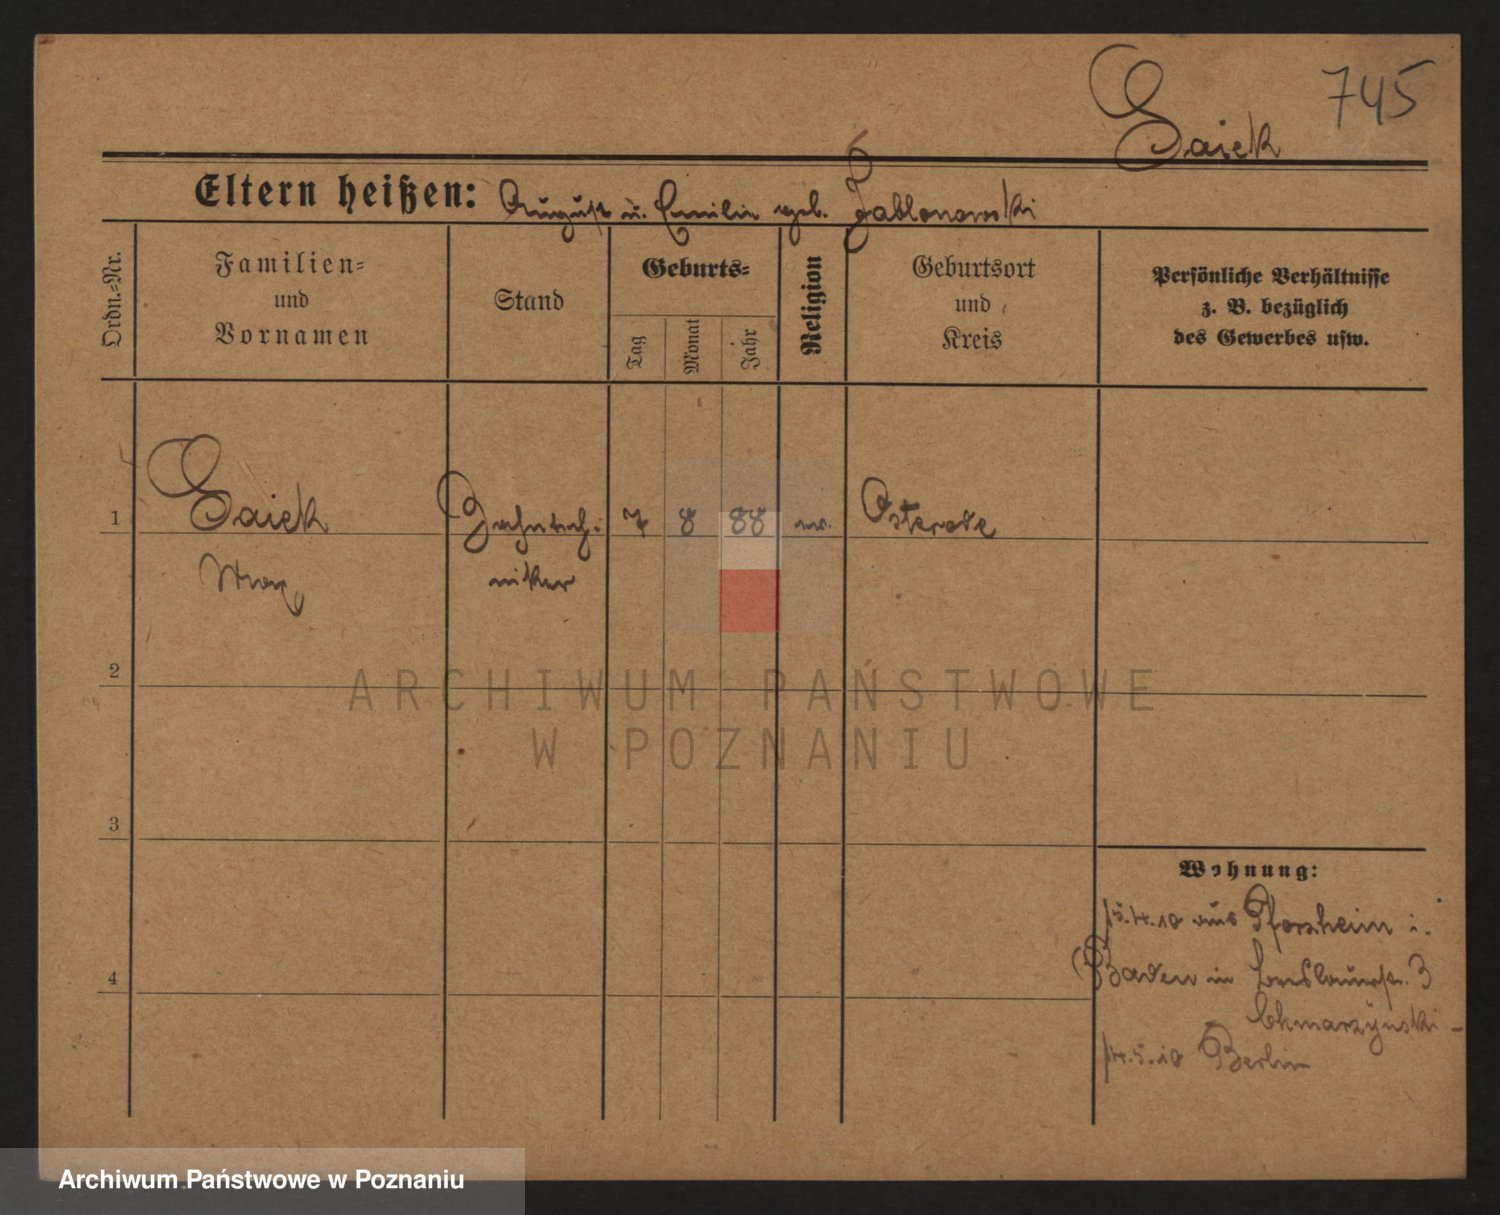 745
Gaiek
Eltern heißen: August u. Emilie geb. Jablonowski
Ordn.=Nr.
Familien=
und
Vornamen
Stand
Geburts=
Tag
Monat
Jahr
Religion
Geburtsort
und
Kreis
Persönliche Verhältnisse
z. B. bezüglich
des Gewerbes usw.
1 Gaiek Zahntech- 7 8 88 ev. Osterode
Max niker
2
ARCHIWUM PAŃSTWOWE
W POZNANIU
3
Wohnung:
4
15.4.10 aus Pforzheim i.
Baden in Breslauerstr. 3
Chmarzynski -
14.5.10 Berlin
Archiwum Państwowe w Poznaniu